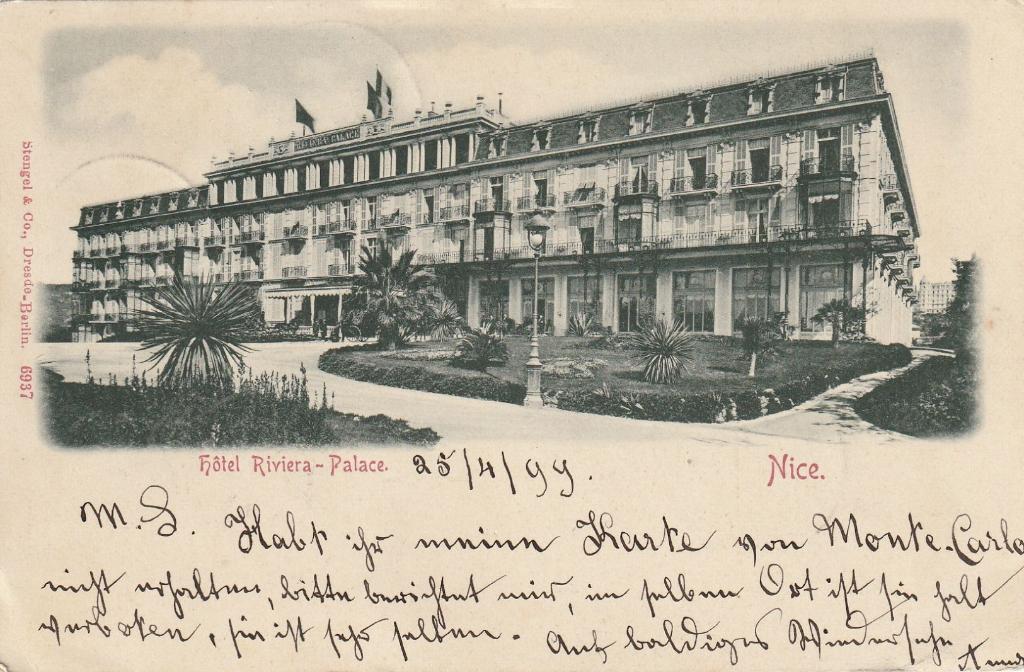 RIVIERA-PALACE
Stengel & Co., Dresde-Berlin. 6937
Hôtel Riviera-Palace. 25/4/99.
Nice.
M. S. Habt ihr meine Karte von Monte-Carlo
nicht erhalten, bitte berichtet mir, im selben Ort ist sie halt
verboten, sie ist sehr selten. Auf baldiges Wiedersehn